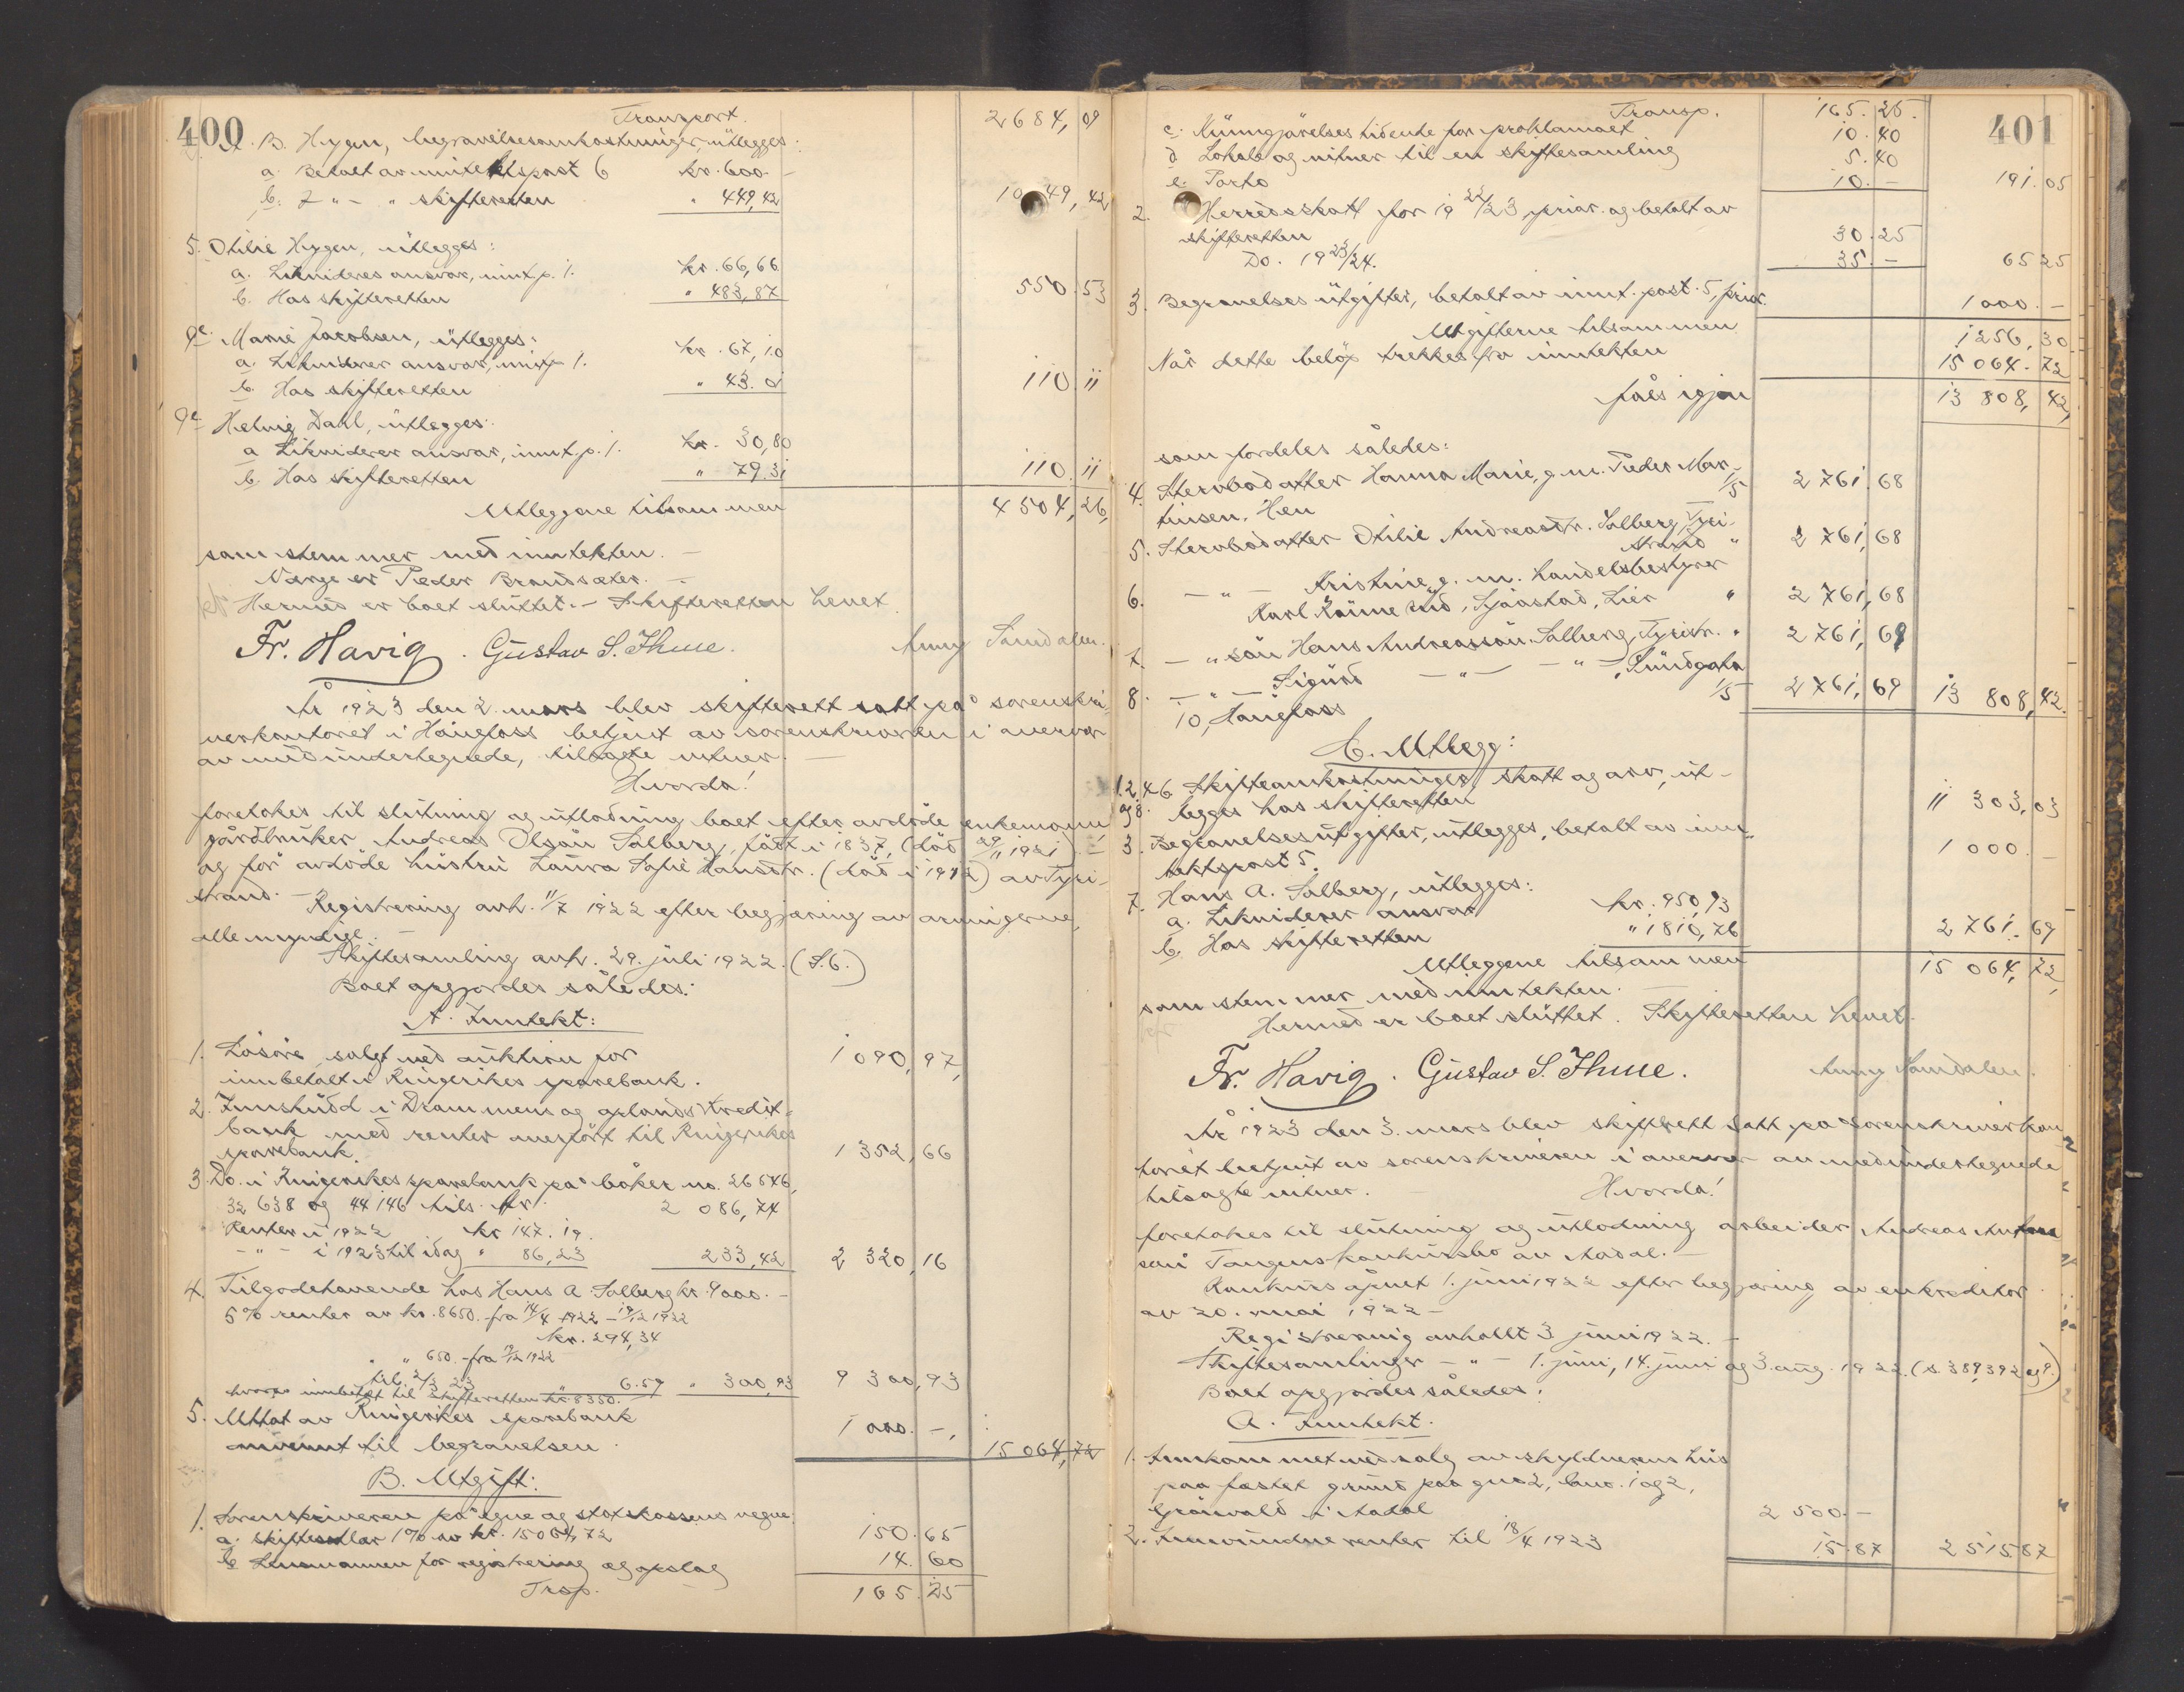 400
Transport. 2684,09
4. B. Hygen, begravelsesomkostninger, utlegges:
a. Betalt av inntektspost 6 kr. 600.-
b. " - " skifteretten " 449,42 1049,42
5. Otilie Hygen, utlegges:
a. Likvideres ansvar, innt.p. 1. kr. 66,66
b. Hos skifteretten " 483,87 550.53
9c. Marie Jacobsen, utlegges:
a. Likviderer ansvar, innt.p 1. kr. 67,10
b. Hos skifteretten " 43.01 110.11
9d. Helvig Dahl, utlegges:
a Likviderer ansvar, innt.p. 1. kr. 30,80
b. Hos skifteretten " 79.31 110.11
Utleggene tilsammen 4504,26,
som stemmer med inntekten. -
Verge er Peder Brandsæter. -
Hermed er boet sluttet. - Skifteretten hevet.
Fr. Havig. Gustav S. Thue. Anny Sandalen.
År 1923 den 2. mars blev skifterett satt på sorenskri-
verkontoret i Hönefoss betjent av sorenskriveren i nærvær
av medundertegnede, tilsagte vitner. -
Hvorda!
foretokes til slutning og utlodning boet efter avdöde enkemann
gårdbruker Andreas Olsön Solberg, födt i 1837, (död 29/11 1921) -
og för avdöde hustru Laura Sofie Hansdtr. (död i 1912) av Tyri-
strand. - Registrering avh. 11/7 1922 efter begjæring av arvingerne,
alle myndige. -
Skiftesamling avh. 29. juli 1922. (S.6.)
Boet opgjordes således:
A. Inntekt:
1. Lösöre, solgt ved auktion for
innbetalt i Ringerikes sparebank. 1090,97,
2. Innskudd i Drammens og oplands kredit-
bank med renter overfört til Ringerikes
sparebank. 1352,66
3. Do. i Ringerikes sparebank på böker no. 26546,
32638 og 44146 tils. kr. 2086,74
" Renter i 1922 kr 147.19.
- " - i 1923 til idag " 86,23 233,42 2320,16
4. Tilgodehavende hos Hans A Solberg kr. 9000.-
5% renter av kr. 8650. fra 14/4 1922 - 19/12 1922
kr. 294,34
" " 650.- fra 19/12 1922
til 2/3 23 " 6.59 " 300,93 9300,93
hvorav innbetalt til skifteretten kr. 8350.
5. Uttat av Ringerikes sparebank
anvennt til begravelsen. 1000.-, 15064,72
B. Utgift:
1. Sorenskriveren på egne og statskassens vegne:
a. Skiftesalær 1% av kr. 15064,72 150.65
b Lensmannen for registrering og opslag 14.60
Trsp. 165.25
401
Transp. 165.25.
c. Kunngjörelsestidende for proklamaet 10.40
d. Lokale og vitner til en skiftesamling 5.40
e. Porto 10.- 191.05
2. Herredsskatt for 1922/23, prior. og betalt av
skifteretten 30.25
Do. 1923/24. 35.- 65 25
3. Begravelsesutgifter, betalt av innt. post. 5, prior. 1000.-
Utgifterne tilsammen 1256,30
Når dette belöp trekkes fra inntekten 15064.72
fåes igjen 13808,42,
som fordeles således:
4. Stervbodatter Hanna Marie, g.m. Peder Mar-
tinsen. Hen 1/5 2761.68
5. Stervbodatter Otilie Andreasdtr. Solberg, Tyri-
strand " 2761,68
6. - " - Kristine, g. m. handelsbestyrer
Karl Rönnerud, Sjåstad, Lier " 2761,68
7. - " sön Hans Andreassön Solberg, Tyristr. " 2761,69
8. - " - Sigurd - " - - " -, Sundgata
10, Hönefoss 1/5 2761,69 13808,42.
C. Utlegg:
1.2.4.6 Skifteomkostninger, skatt og arv, ut-
og 8. legges hos skifteretten 11303,03
3. Begravelsesutgifter, utlegges, betalt av inn-
tektspost 5. 1000.-
7. Hans A. Solberg, utlegges:
a. Likviderer ansvar kr. 950,93
b. Hos skifteretten " 1810,76 2761.69
Utleggene tilsammen 15064,72,
som stemmer med inntekten. -
Hermed er boet sluttet. Skifteretten hevet.
Fr. Havig. Gustav S. Thue. Anny Sandalen.
År 1923 den 3. mars blev skifterett satt på sorenskriverkon
toret betjent av sorenskriveren i nærvær av medundertegnede
tilsagte vitner. - Hvorda!
foretokes til slutning og utlodning arbeider Andreas
sön Tangens konkursbo av Aadal. -
Konkurs åpnet 1. juni 1922 efter begjæring av en kreditor
av 20. mai 1922 -
Registrering avholdt 3 juni 1922. -
Skiftesamlinger - " - 1. juni, 14. juni og 3. aug. 1922. (s. 389, 392 og 9.)
Boet opgjordes således:
A. Inntekt.
1. Innkommet ved salg av skyldnerens hus
paa festet grund paa gno 2, bno. 1 og 2,
Grönvold i Aadal 2500.-
2. Innvundne renter til 18/4 1923 15.87 2515 87